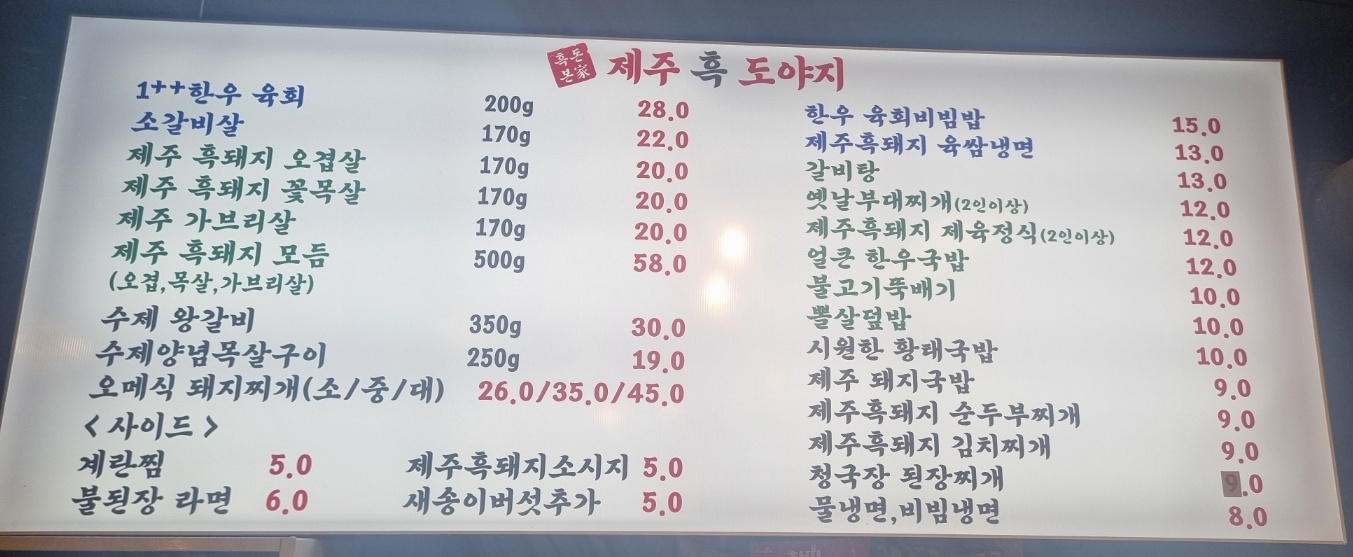 흑돈
본家
제주 흑 도야지
1++한우 육회 200g 28.0
소갈비살 170g 22.0
제주 흑돼지 오겹살 170g 20.0
제주 흑돼지 꽃목살 170g 20.0
제주 가브리살 170g 20.0
제주 흑돼지 모듬 500g 58.0
(오겹,목살,가브리살)
수제 왕갈비 350g 30.0
수제양념목살구이 250g 19.0
오메식 돼지찌개(소/중/대) 26.0/35.0/45.0
<사이드>
계란찜 5.0 제주흑돼지소시지 5.0
불된장 라면 6.0 새송이버섯추가 5.0
한우 육회비빔밥 15.0
제주흑돼지 육쌈냉면 13.0
갈비탕 13.0
옛날부대찌개(2인이상) 12.0
제주흑돼지 제육정식(2인이상) 12.0
얼큰 한우국밥 12.0
불고기뚝배기 10.0
뽈살덮밥 10.0
시원한 황태국밥 10.0
제주 돼지국밥 9.0
제주흑돼지 순두부찌개 9.0
제주흑돼지 김치찌개 9.0
청국장 된장찌개 9.0
물냉면,비빔냉면 8.0